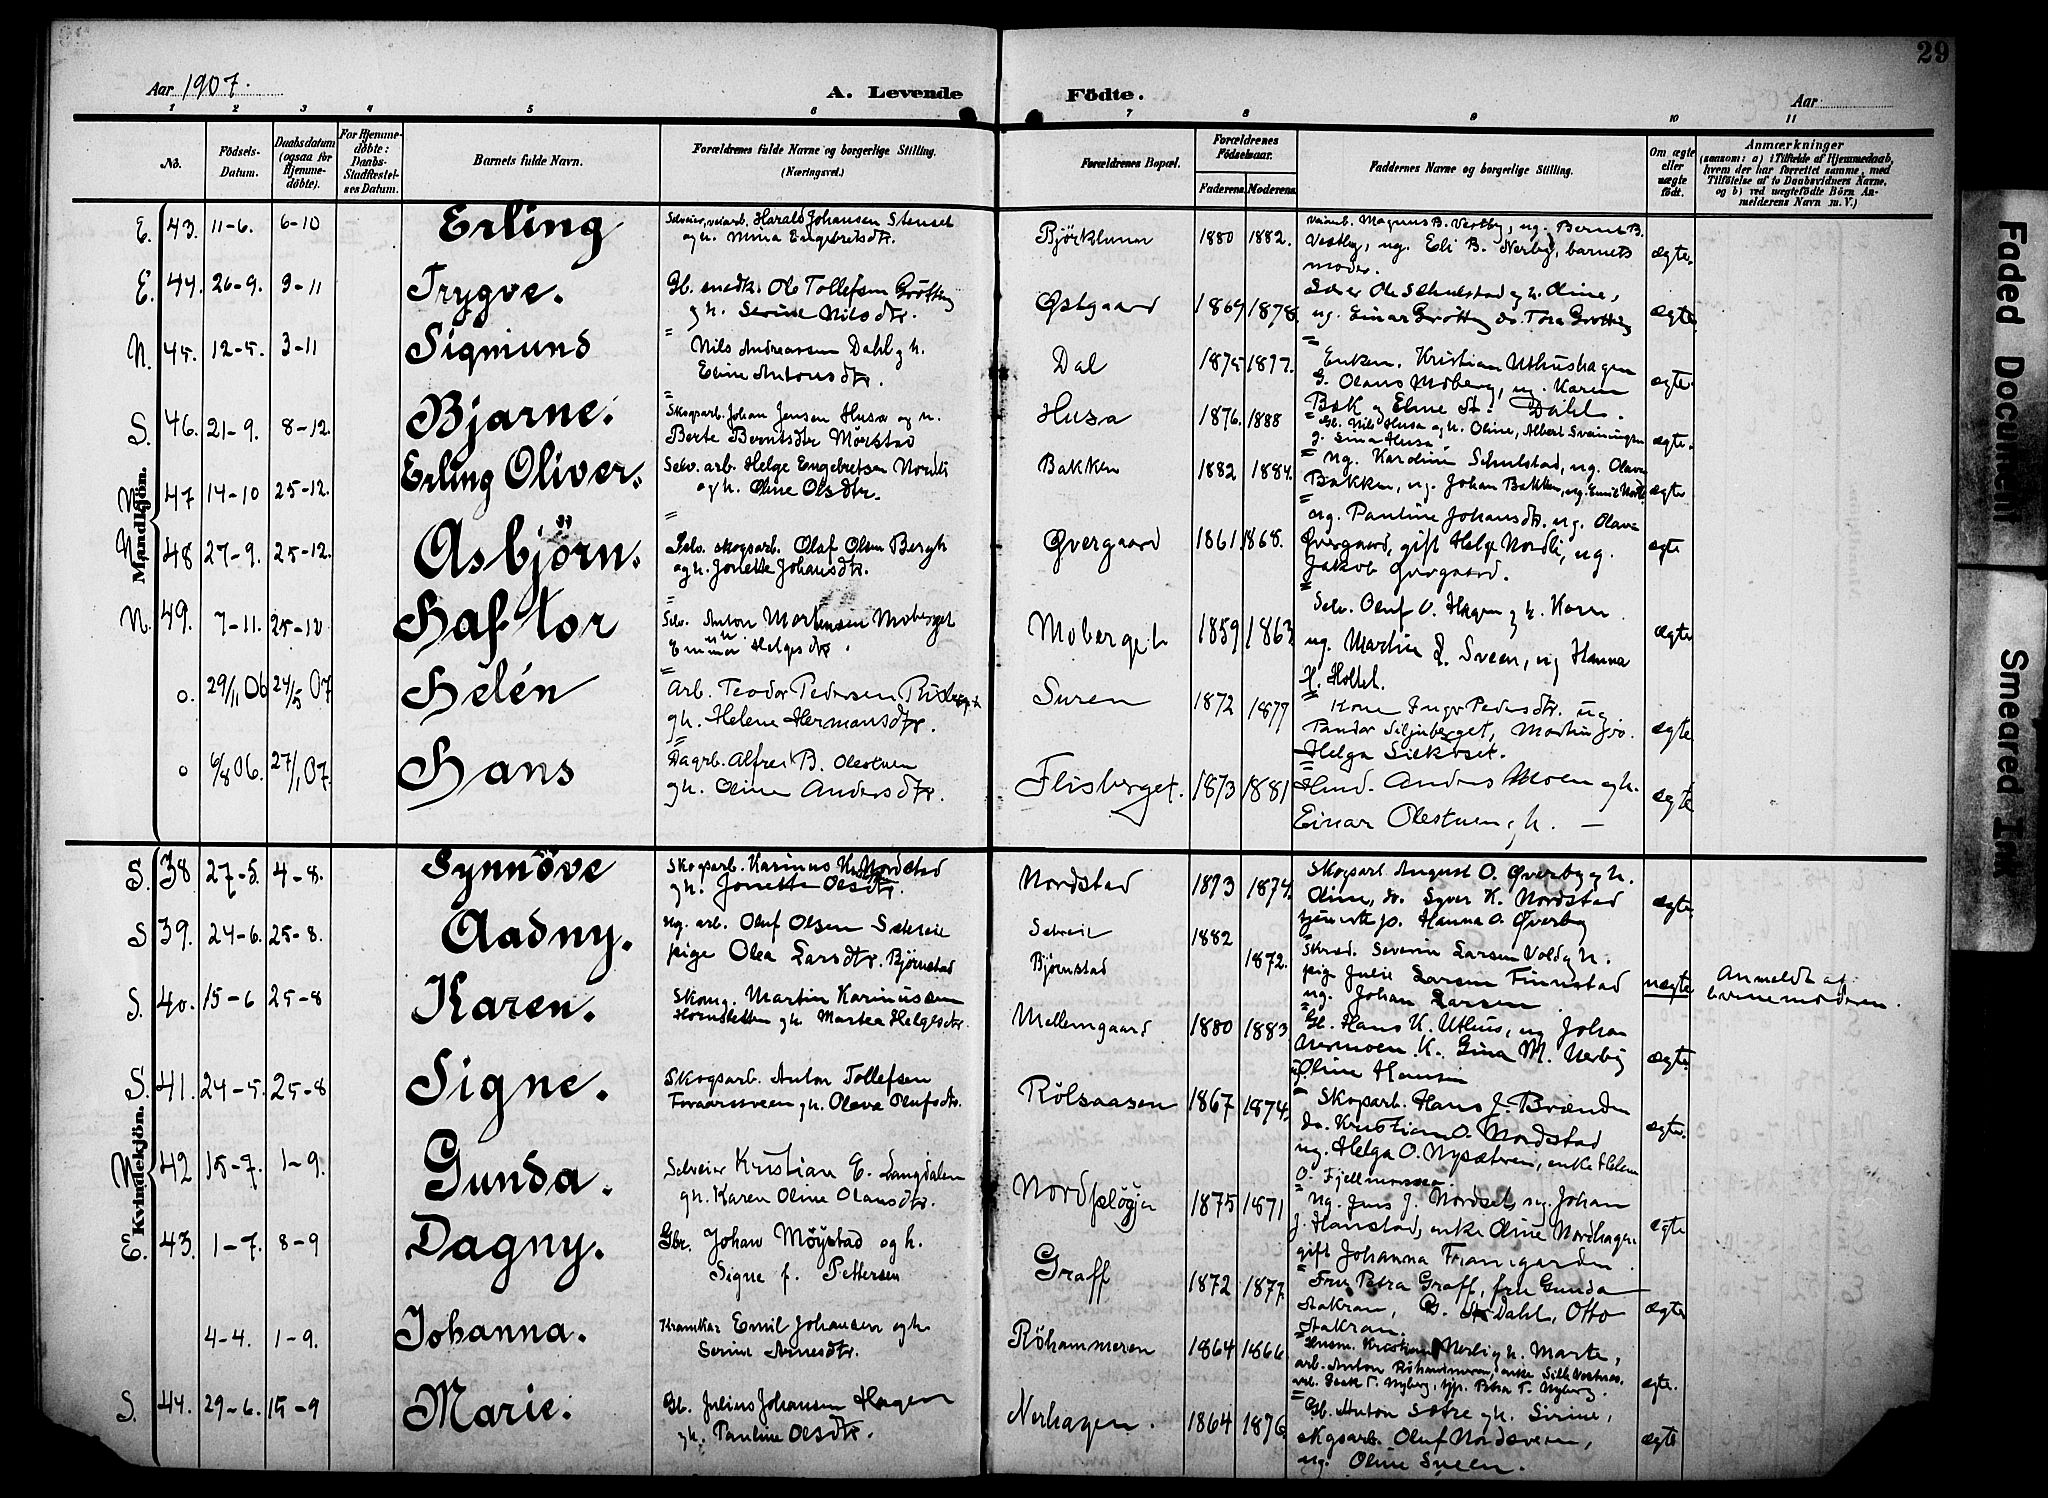 29
Aar 1907.
A. Levende Födte.
Aar
1 2 3 4 5 6 7 8 9 10 11
No.
Födsels-Datum.
Daabsdatum (ogsaa for Hjemme-döbte).
For Hjemme-döbte: Daabs-Stadfæstel-ses Datum.
Barnets fulde Navn.
Forældrenes fulde Navne og borgerlige Stilling. (Næringsvei.)
Forældrenes Bopæl.
Forældrenes Födselsaar.
Faderens. Moderens.
Faddernes Navne og borgerlige Stilling.
Om ægte eller uægte födt.
Anmærkninger
(saasom: a) i Tilfælde af Hjemmedaab, hvem der har forrettet samme, med Tilföielse af to Daabsvidners Navne, og b) ved uægtefödte Börn An-melderens Navn m. V.)
Mandkjön.
E. 43. 11-6. 6-10 Erling
Selveier, veiarb. Harald Johansen Stenset
og h. Mina Engebretsdtr.
1880 1882.
Veiarb. Magnus B. Vestby, ug. Bernt B.
Vestby, ug. Eli B. Nerby, barnets
moder.
ægte.
E. 44. 26-9. 3-11 Trygve.
Gb. snedk. Ole Tollefsen Grötting
og h. Serine Nilsdtr.
Østgaard 1869 1878.
Ole Schulstad og h. Oline,
ug. Einar Grötting do. Tora Grötting
ægte
N. 45. 12-5. 3-11 Sigmund
Nils Andreassen Dahl og h.
Eline Antonsdtr.
Dal 1875 1877.
Enkem. Kristian Uthushagen
G. Olaus Moberg, ug. Karen
Bak og Eline Dahl.
ægte
S. 46. 21-9. 8-12. Bjarne.
Skogsarb. Johan Jensen Husa og h.
Berte Berntsdtr Morstad
Husa 1876. 1888
Gb. Nils Husa og h. Oline, Albert Sveningsen
g. Lina Husa.
ægte.
N 47 14-10 25-12. Erling Oliver.
Selv. arb. Helge Engebretsen Nordli
og h. Oline Olsdtr.
Bakken 1882 1884.
ug. Karoline Schulstad, ug. Olava
Bakken, ug. Johan Bakken, ug. Emil
ægte
N 48 27-9. 25-12. Asbjörn.
Selv. skogsarb. Olaf Olsen Bergh
og h. Jonette Johansdtr.
Øvergaard 1861. 1868.
ug. Pauline Johansdtr. ug. Olava
Øvergaard, gift Helge Nordli, ug.
Jakob Øvergaard.
ægte
N. 49. 7-11. 25-12 Haftor
Selv. Anton Mortensen Moberget
Emma Helgesdtr.
Moberget 1859 1863
Selv. Oluf O. Hagen og h. Karen
ug. Martin L. Sveen, ug Hanna
H. Holtet.
ægte
o. 29/11 06 24/5 07 Helén
Arb. Teodor Pedersen
g h. Helene Hermansdtr.
Suren 1872 1877
Kone Inga Pedersdtr. ug
Siljuberget, Martin
Helga
ægte
o 6/8 06. 27/1 07. Hans
Dagarb. Alfred B. Olestuen
g h. Oline Andersdtr.
Flisberget. 1873 1881
Husd. Anders Moen og h.
Einar Olestuen g h. —
ægte
Kvindekjön.
S. 38 27-5. 4-8. Synnöve
Skogsarb. Karinus K. Nordstad
g h. Jonette Olsdtr.
Nordstad 1873 1874.
Skogsarb August O. Øverby og h.
Oline, do. Syver K. Nordstad
tjenestepi. Hanna O. Øverby
ægte
S 39. 24-6. 25-8. Aadny.
ug. arb. Oluf Olsen
pige Olea Larsdtr. Björnstad
Björnstad 1882 1872.
Skræd. Severin Larsen Vold og h.
pige Julie Larsen Finnstad
ug. Johan Larsen
uægte
Anmeldt af
barnemoderen.
S. 40. 15-6 25-8 Karen.
Skomg. Martin Karinussen
Hornsletten g h. Martea Helgesdtr.
Mellemgaard 1880 1883
Gb. Hans K. Uthus, ug Johan
Nermoen K. Gina M. Nerby
Oline Hansen
ægte.
S. 41. 24-5. 25-8 Signe.
Skogsarb. Anton Tollefsen
Foraarsveen g h. Olava Olufsdtr.
Rölsaasen 1867 1874.
Skogsarb. Hans J. Brænden
do. Kristian O. Nordstad
ug. Helga O. Nysætren, enke Helene
O. Fjellmosen.
ægte.
N 42 15-7. 1-9. Gunda.
Selveier Kristian E. Langdalen
g h. Karen Oline Olausdtr.
1875 1871
ug. Jens J. Nordset, ug. Johan
J. Hanstad, enke Oline Nordhagen
gift Johanna Framgarden
ægte
E. 43. 1-7. 8-9 Dagny.
Gbr. Johan Möystad og h.
Signe f. Pettersen
Graff 1872 1877
Fru Petra Graff, fru Gunda
Stakran, G. A. Dahl, Otto
Stakran.
ægte
4-4. 1-9. Johanna.
Kramkar Emil Johansen og h.
Serine Arnesdtr.
Röhammeren 1864 1866
Husm. Kristian Nerli og h. Marte,
arb. Anton Röhammeren, enke Sille
arb. Isak T. Nyberg, tjp. Petra T. Nyberg.
ægte.
S. 44. 29-6. 15-9 Marie.
Gb. Julius Johansen Hagen
g h. Pauline Olsdtr.
Nerhagen. 1864 1876
Gb. Anton Sætre g h. Sirine,
skogsarb. Oluf Nordsveen,
ug. Oline Sveen.
ægte
Faded Document
Smeared Ink